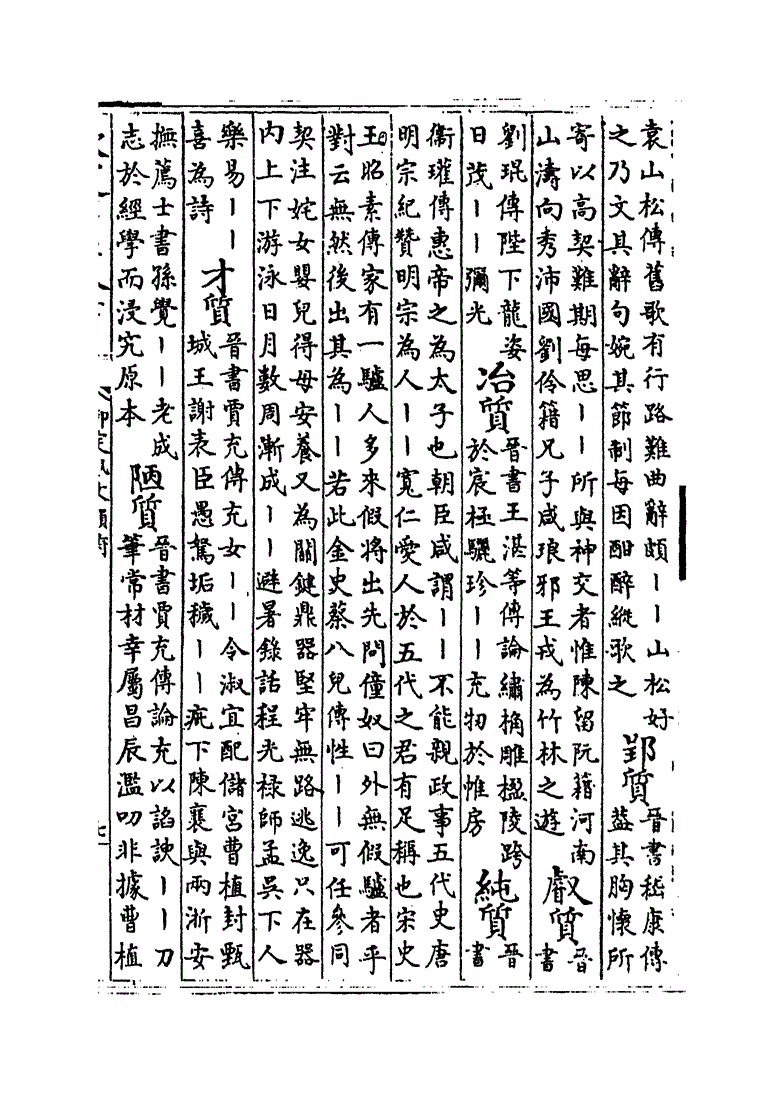 袁山松傳舊歌有行路難曲辭頗丨丨山松好
之乃文其辭句婉其節制每因酣醉縱歌之
郢質
晉書嵇康傳
葢其胸懷所
寄以高契難期每思丨丨所與神交者惟陳留阮籍河南
山濤向秀沛國劉伶籍兄子咸琅邪王戎為竹林之遊
叡質
晉
書
劉琨傳陛下龍姿
日茂丨丨彌光
冶質
晉書王湛等傳論繡桷雕楹陵跨
於宸極驪珍丨丨充牣於帷房
純質
晉
書
衞瓘傳惠帝之為太子也朝臣咸謂丨丨不能親政事五代史唐
明宗紀贊明宗為人丨丨寬仁愛人於五代之君有足稱也宋史
王昭素傳家有一驢人多來假將出先問僮奴曰外無假驢者乎
對云無然後出其為丨丨若此金史蔡八兒傳性丨丨可任參同
契注姹女嬰兒得母安養又為關鍵鼎器堅牢無路逃逸只在器
内上下游泳日月數周漸成丨丨避暑錄話程光禄師孟吳下人
樂易丨丨
喜為詩
才質
晉書賈充傳充女丨丨令淑宜配儲宮曹植封甄
城王謝表臣愚駑垢穢丨丨疵下陳襄與兩浙安
撫薦士書孫覺丨丨老成
志於經學而浸究原本
陋質
晉書賈充傳論充以諂諛丨丨刀
筆常材幸屬昌辰濫叨非據曹植
御定佩文韻府